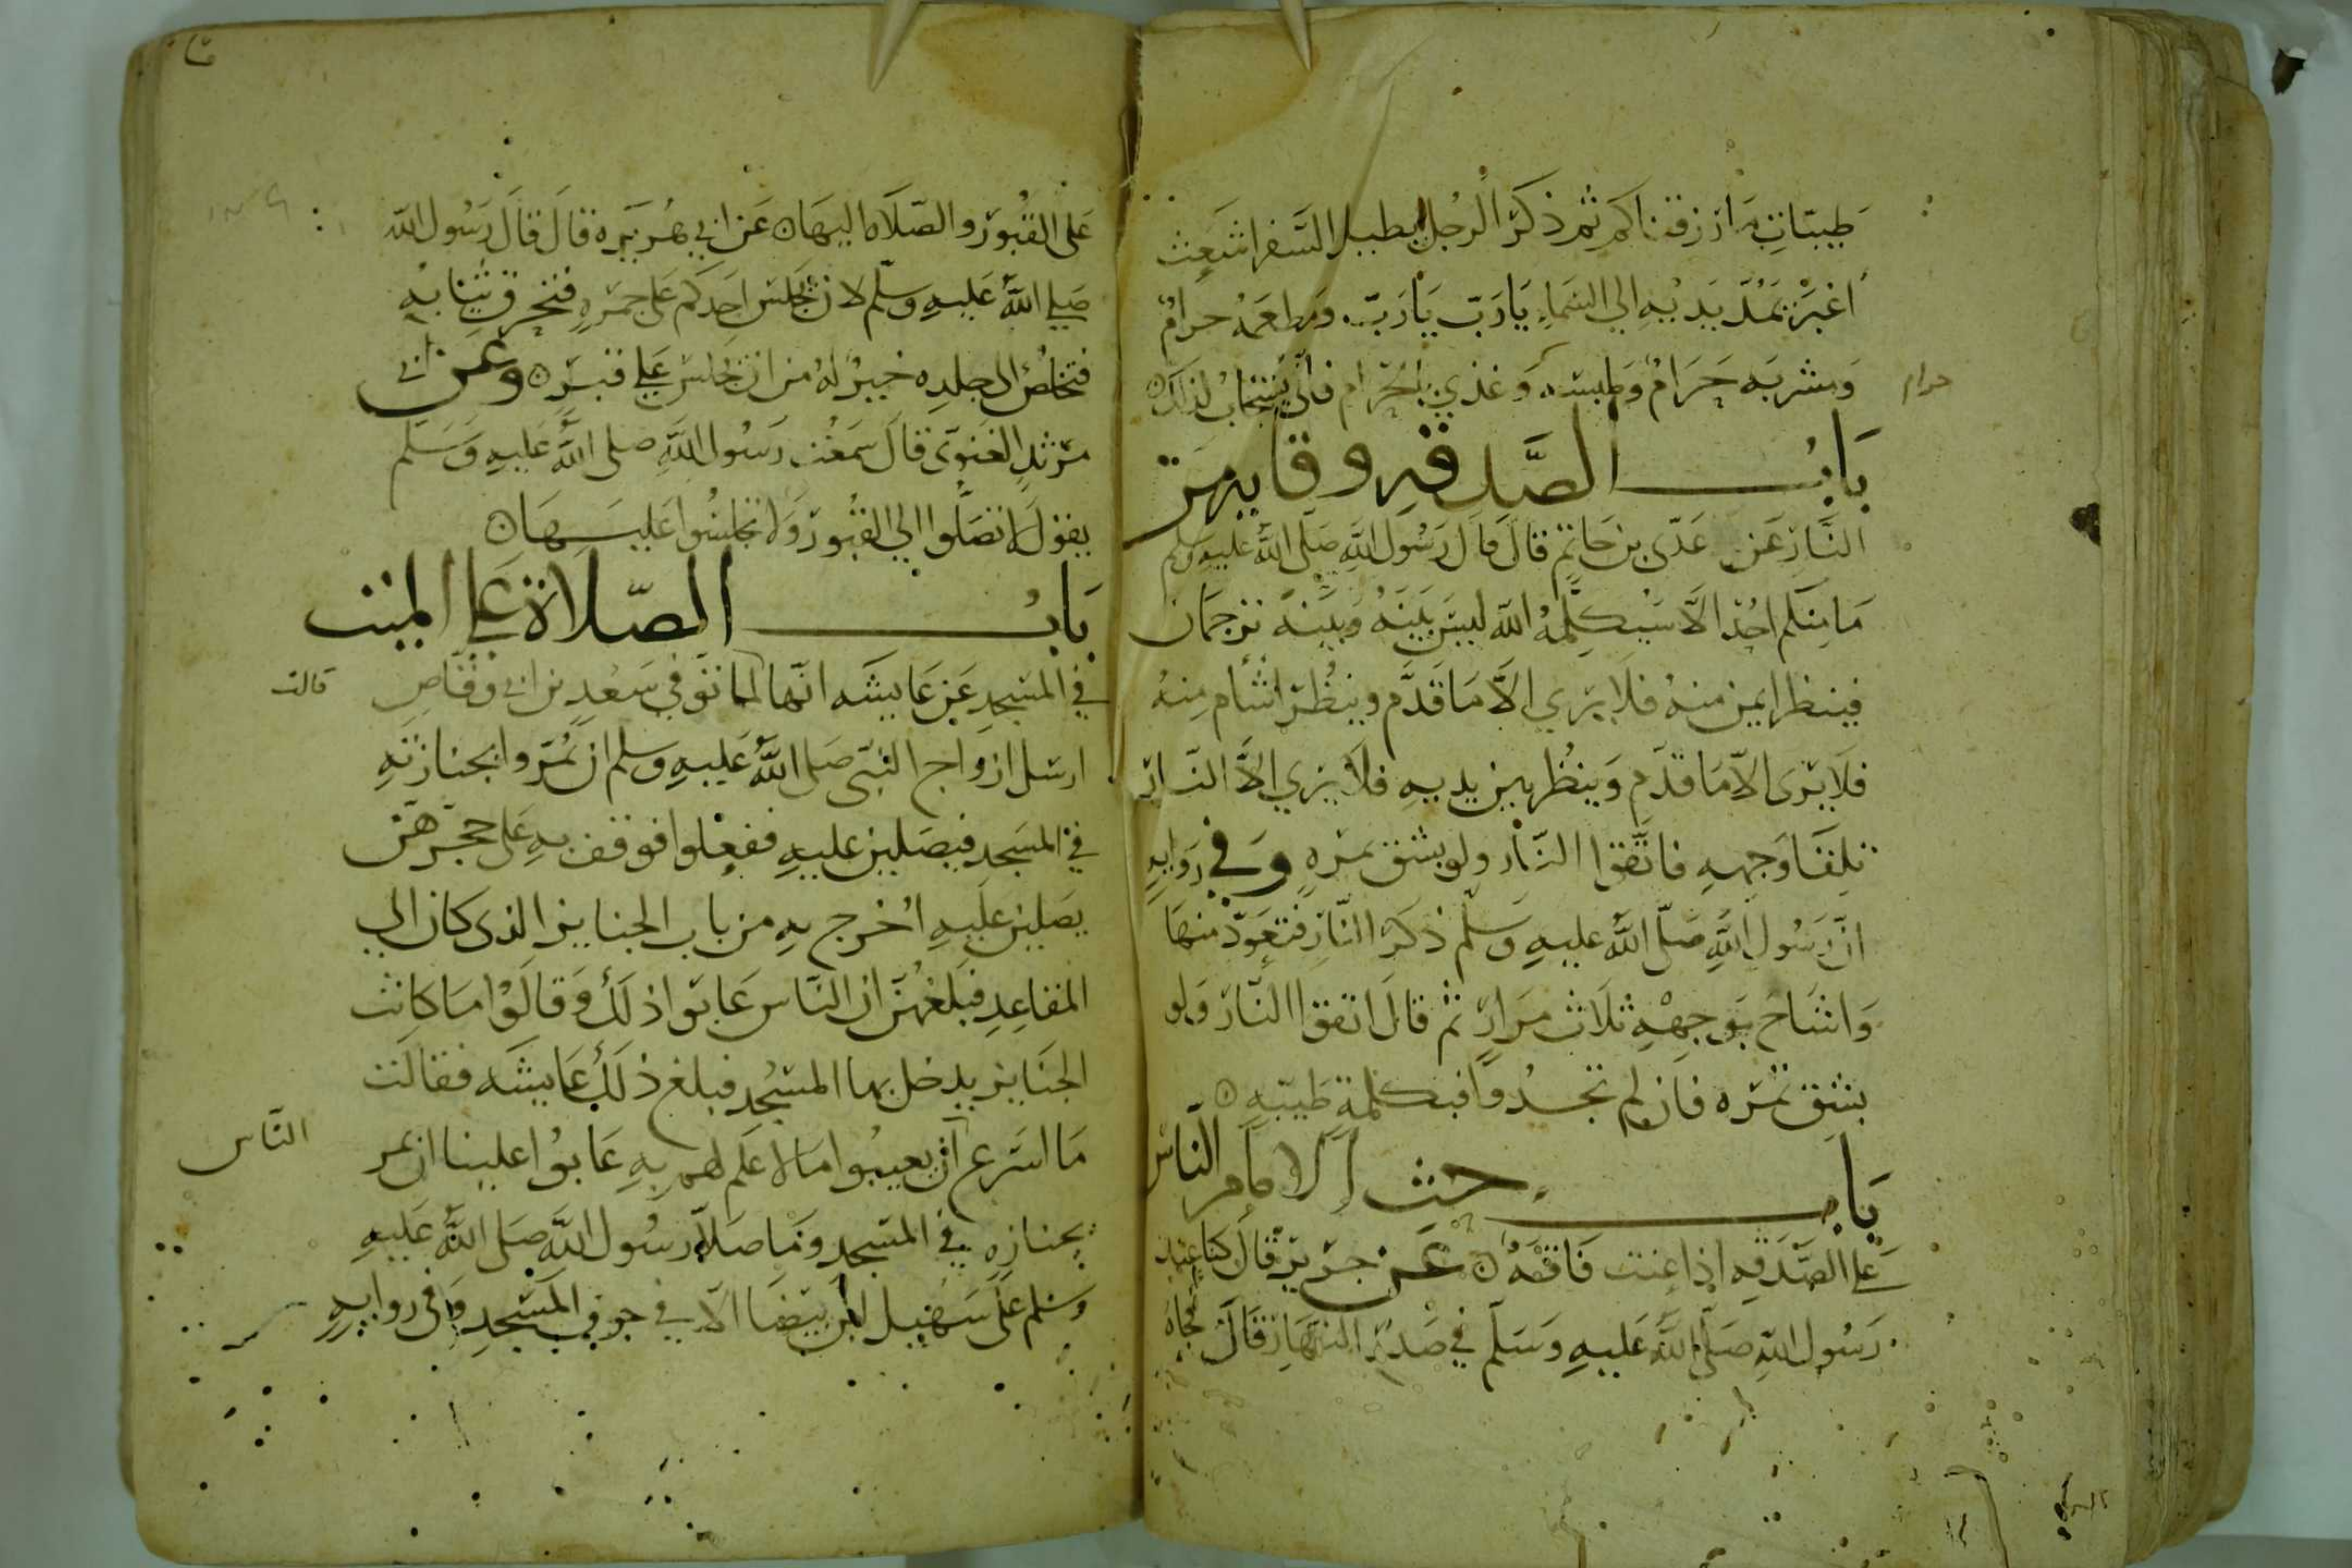 طيبات ما رزقناكم ثم ذكر الرجل يطيل السفر اشعث
اغبر يمد يديه الى السماء يا رب يا رب ومطعمه حرام
ومشربه حرام وملبسه وغذي بالحرام فانى يستجاب لذلك
حرام
باب الصدقه وقايه من
النار عن عدي بن حاتم قال قال رسول الله صلى الله عليه وسلم
ما منكم احد الا سيكلمه الله ليس بينه وبينه ترجمان
فينظر ايمن منه فلا يرى الا ما قدم وينظر اشأم منه
فلا يرى الا ما قدم وينظر بين يديه فلا يرى الا النار
تلقا وجهه فاتقوا النار ولو بشق تمره وفي روايه
ان رسول الله صلى الله عليه وسلم ذكر النار فتعوذ منها
واشاح بوجهه ثلاث مرار ثم قال اتقوا النار ولو
بشق تمره فان لم تجدوا فبكلمة طيبه
باب حث الامام الناس
على الصدقه اذا عنت فاقه عن جرير قال كنا عند
رسول الله صلى الله عليه وسلم في صدر النهار قال فجاه
على القبور والصلاه اليها عن ابي هريره قال قال رسول الله
صلى الله عليه وسلم لان يجلس احدكم على جمره فتحرق ثيابه
فتخلص الى جلده خير له من ان يجلس على قبر وعن ابي
مرثد الغنوي قال سمعت رسول الله صلى الله عليه وسلم
يقول لا تصلوا الى القبور ولا تجلسوا عليها
باب الصلاة على الميت
في المسجد عن عايشه انها لما توفي سعد بن ابي وقاص
قالت
ارسل ازواج النبي صلى الله عليه وسلم ان يمروا بجنازته
في المسجد فيصلين عليه ففعلوا فوقف به على حجرهن
يصلين عليه اخرج به من باب الجنايز الذي كان الى
المقاعد فبلغهن ان الناس عابوا ذلك وقالوا ما كانت
الجنايز يدخل بها المسجد فبلغ ذلك عايشه فقالت
ما اسرع ان يعيبوا ما لا علم لهم به عابوا علينا ان يمر
الناس
بجنازه في المسجد وما صلا رسول الله صلى الله عليه
وسلم على سهيل بن بيضا الا في جوف المسجد وفي روايه